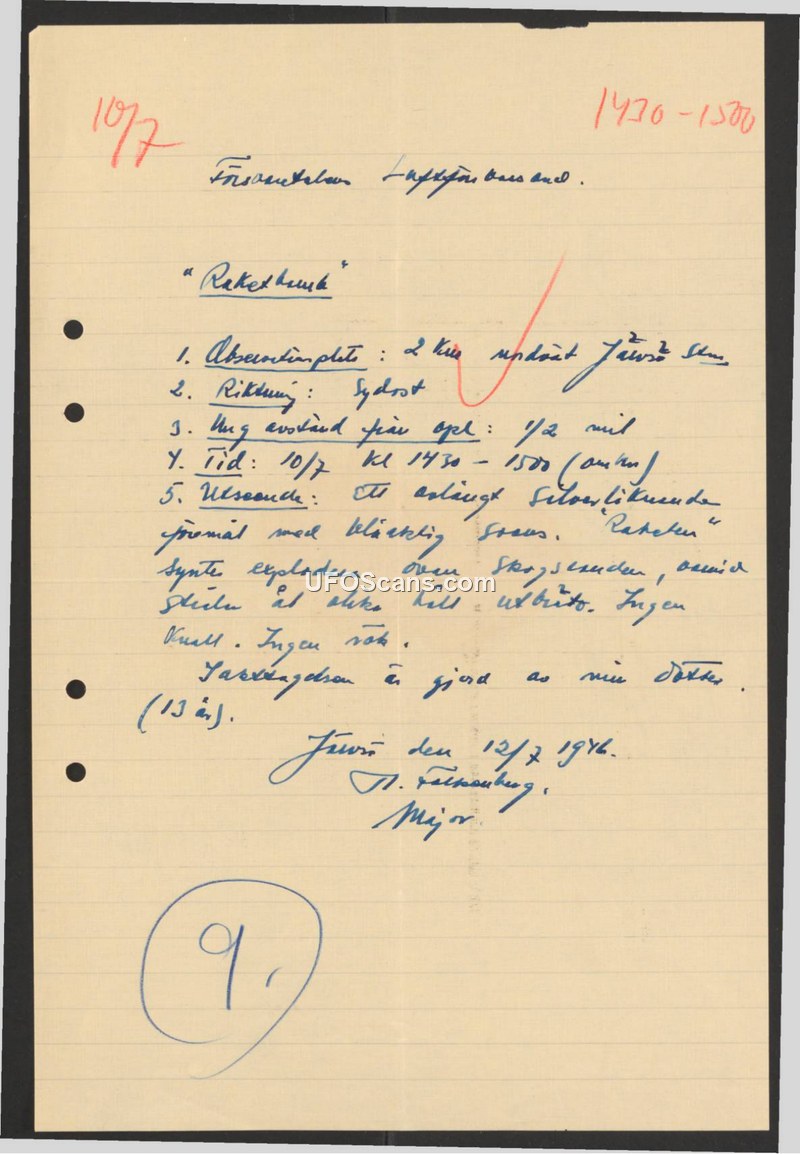 10/7
1430 - 1500
Försvarstaben Luftförsvarsavd.
"Raketbomb"
1. Observationsplats : 2 km nordväst Järvsö Stn
2. Riktning : Sydost
3. Ung avstånd från opl : 1/2 mil
4. Tid : 10/7 kl 1430 - 1500 (omkr)
5. Utseende : Ett avlångt silverliknande
föremål med blåaktig svans. "Raketen"
syntes explodera ovan skogsranden, varvid
strålar åt olika håll utbröto. Ingen
knall. Ingen rök.
Iakttagelsen är gjord av min dotter.
(13 år).
Järvsö den 12/7 1946.
Falkenberg.
Major
9.
UFOScans.com